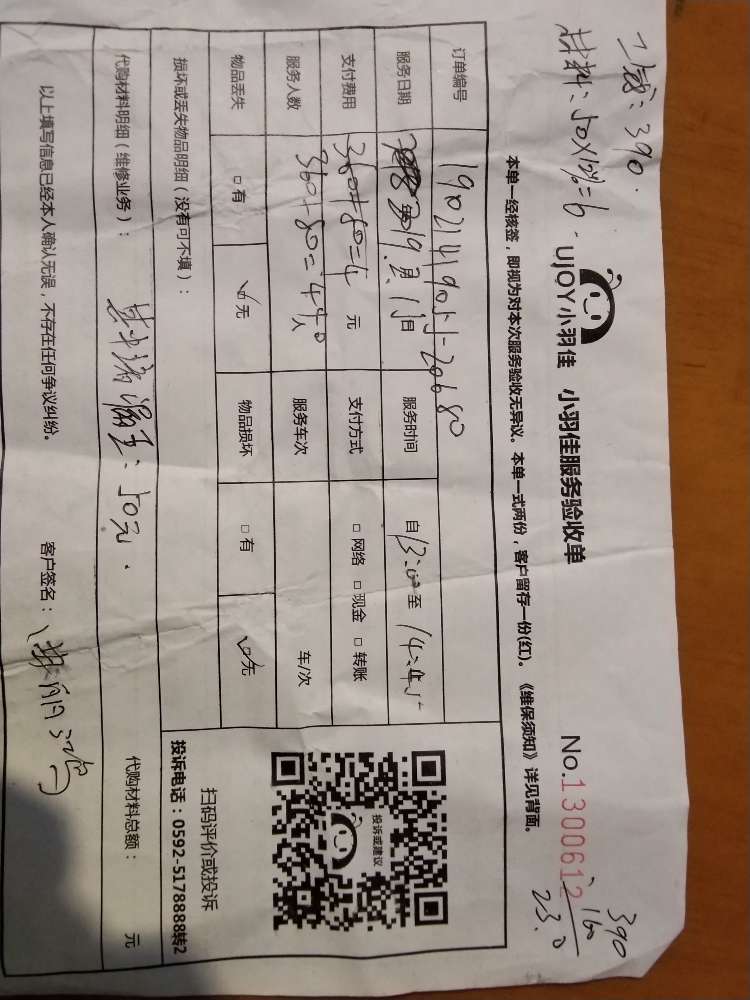 二感：390.
材料：50×12%=6.
390
160
23.0
UjOY小羽佳 小羽佳服务验收单
No.1300612
本单一经核签，即视为对本次服务验收无异议。本单一式两份，客户留存一份(红)。《维保须知》详见背面。
订单编号
服务日期 2019.
服务时间 自13:00至14:45
支付费用 360+80=4 元
支付方式 □网络 □现金 □转账
服务人数 360+80=440 人
服务车次 车/次
物品丢失 □有 ☑无
物品损坏 □有 ☑无
损坏或丢失物品明细（没有可不填）：
代购材料明细（维修业务）：
50元.
代购材料总额： 元
以上填写信息已经本人确认无误，不存在任何争议纠纷。
客户签名：
投诉或建议
扫码评价或投诉
投诉电话：0592-5178888转2